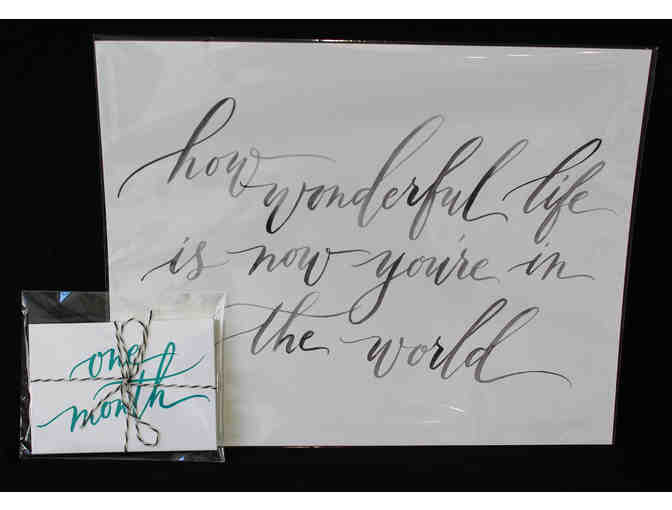 how wonderful life
is now you're in
the world
one
month